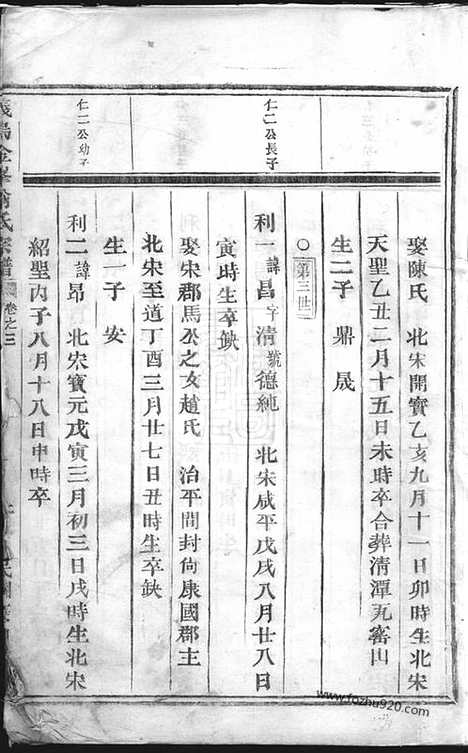 娶陳氏 北宋開寶乙亥九月十一日卯時生北宋
天聖乙丑二月十五日未時卒合葬清潭瓦窰山
生二子 鼎 晟
○第三世
仁二公長子
利一諱昌字清號德純 北宋咸平戊戌八月廿八日
寅時生卒缺
娶宋郡馬公之女趙氏 治平間封尙康國郡主
北宋至道丁酉三月廿七日丑時生卒缺
生一子 安
仁二公幼子
利二諱昂 北宋寶元戊寅三月初三日戌時生北宋
紹聖丙子八月十八日申時卒
氏宗譜 卷之三
www.fozhu920.com